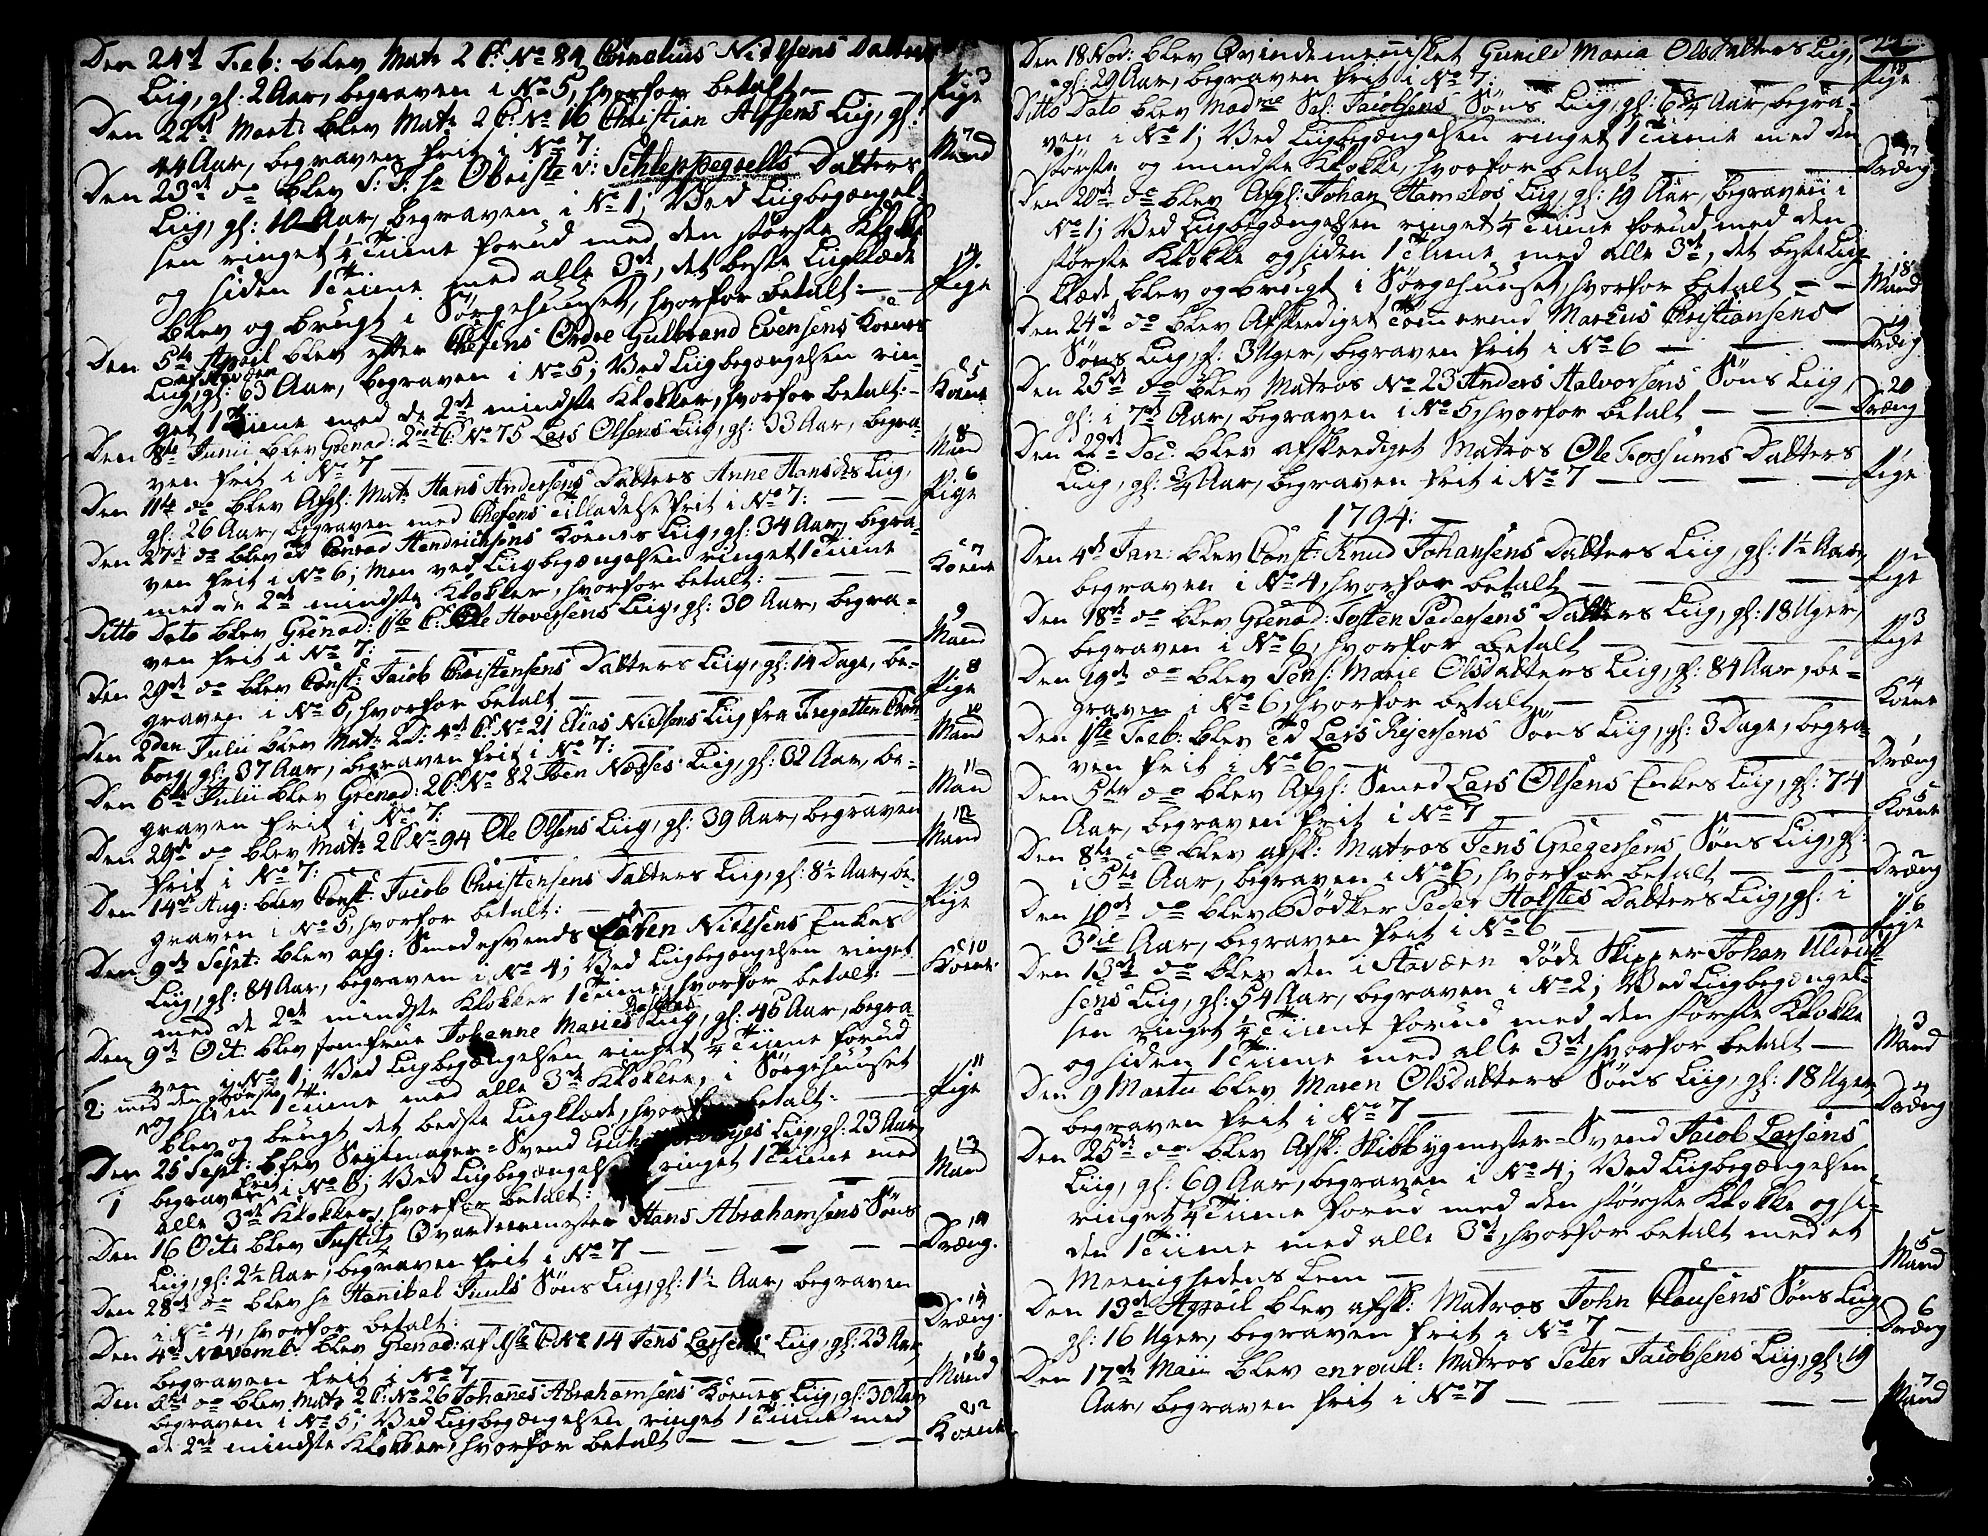 Den 24de Feb: blev Matr: 2 C: No 84 Cornelius Nielsens Datters
Liig, gl: 2 Aar, begraven i No 5, hvorfor betalt —
3
Pige
Den 22de Mart: blev Matr: 2 C: No 16 Christian Liig, gl:
44 Aar, begraven frit i No 7:
7
Mand
Den 23de do blev S: T: Hr Obriste v: Schleppegrells Datters
Liig, gl: 10 Aar, begraven i No 1; Ved Liigbegængel-
sen ringet 1/4 Time forud med den største Klokke
og siden 1 Time med alle 3de, det beste Liigklæde
blev og brugt i Sørgehuuset, hvorfor betalt: —
4
Pige
Den 5te April blev efter Chefens Ordre Gulbrand Evensens Koenes
Liig, gl: 63 Aar, begraven i No 5; Ved Liigbegængelsen rin-
get 1 Time med de 2de mindste Klokker, hvorfor betalt: —
5
Koene
Den 8de Junii blev Grenad: 2den C: No 75 Lars Olsens Liig, gl: 33 Aar, begra-
ven frit i No 7
8
Mand
Den 11te do blev Afsk: Mat: Hans Andersens Datters Anne Hansdtrs Liig,
gl: 26 Aar, begraven med Chefens Tilladelse frit i No 7:
6
Pige
Den 27de do blev Conrad Hendrichsens Koenes Liig, gl: 34 Aar, begra-
ven frit i No 6; Men ved Liigbegængelsen ringet 1 Time
med de 2de mindste Klokker, hvorfor betalt:
7
Koene
Ditto Dato blev Grenad: 1ste C: Ole Hoversens Liig, gl: 30 Aar, begra-
ven frit i No 7:
9
Mand
Den 29de do blev Const: Jacob Christensens Datters Liig, gl: 14 Dage, be-
graven i No 5, hvorfor betalt
8
Pige
Den 2den Julii blev Mat: 2D: 4de C: No 21 Elias Nielsens Liig fra Fregatten Cron
borg, gl: 37 Aar, begraven frit i No 7:
10
Mand
Den 6te Julii blev Grenad: 2 C: No 82 Iben Næsses Liig, gl: 32 Aar, be-
graven frit i No 7:
11
Mand
Den 29de do blev Matr: 2 C No 94 Ole Olsens Liig, gl: 39 Aar, begraven
frit i No 7:
12
Mand
Den 14de Aug: blev Const: Jacob Christensens Datters Liig, gl: 8 1/2 Aar, be-
graven i No 5, hvorfor betalt:
9
Pige
Den 9de Sept: blev afg: Smedesvends Nielsens Enkes
Liig, gl: 84 Aar, begraven i No 4; Ved Liigbegængelsen ringet
med de 2de mindste Klokker 1 Time, hvorfor betalt: —
10
Koene
Den 9de Oct: blev Jomfrue Johanne Maries Liig, gl: 46 Aar, begra-
ven i No 1; Ved Liigbegængelsen ringet 1/4 Time forud
2: med den største
og siden 1 Time med alle 3de Klokker, i Sørgehuuset
blev og brugt det bedste Liigklæde, hvorfor betalt:
11
Pige
Den 25 Sept: blev Seylmager-Svend Liig, gl: 23 Aar,
1 begraven frit i No 6; Ved Liigbegængelsen ringet 1 Time med
alle 3de Klokker, hvorfor betalt:
13
Mand
Den 16 Octb blev Justitz Qvarteermester Hans Abrahamsens Søns
Liig, gl: 2 1/2 Aar, begraven frit i No 7 —
14
Dræng.
Den 28de do blev Hr Hanibal Juuls Søns Liig, gl: 1 1/2 Aar, begraven
i No 4, hvorfor betalt:
Dræng.
Den 4de Novemb: blev Grenad: af 1ste C No 14 Jens Larsens Liig, gl: 23 Aar,
begraven frit i No 7
16
Mand
Den do blev Matr: 2 C: No 26 Johannes Abrahamsens Koenes Liig, gl: 30 Aar,
begraven i No 5; Ved Liigbegængelsen ringet 1 Time med
de 2de mindste Klokker, hvorfor betalt —
12
Koene
Den 18 Nov: blev Qvindemennisket Gunild Maria Olsdatters Liig,
gl: 29 Aar, begraven frit i No 7:
13
Pige
Ditto Dato blev Madme Sal: Jacobsens Søns Liig, gl: 6 3/4 Aar, begra-
ven i No 1; Ved Liigbegængelsen ringet 1 Time med den
største og mindste Klokke, hvorfor betalt
17
Dræng
Den 20de do blev Afsk: Johan Liig, gl: 19 Aar, begraven i
No 1; Ved Liigbegængelsen ringet 1/4 Time forud med den
største Klokke og siden 1 Time med alle 3de, det beste Liig-
klæde blev og brugt i Sørgehuuset, hvorfor betalt —
18
Mand
Den 24de do blev Afskeediget Tømmermd Marcus Christiansens
Søns Liig, gl: 3 Uger, begraven frit i No 6 —
19
Dræng
Den 25de do blev Matros No 23 Anders Halvorsens Søns Liig,
gl: i 7de Aar, begraven i No 5, hvorfor betalt —
20
Dræng
Den 22de Dec: blev afskeediget Matros Ole Fossums Datters
Liig, gl: 3/4 Aar, begraven frit i No 7 —
1
Pige
1794: —
Den 4de Jan: blev Const: Knud Johansens Datters Liig, gl: 1 1/2 Aar,
begraven i No 4, hvorfor betalt —
2
Pige
Den 18de do blev Grenad: Tosten Pedersens Datters Liig, gl: 18 Uger,
begraven i No 6, hvorfor betalt
3
Pige
Den 19de do blev Pens: Marie Olsdatters Liig, gl: 84 Aar, be-
graven i No 6, hvorfor betalt
4
Koene
Den 1ste Feb: blev Lars Rejersens Søns Liig, gl: 3 Dage, begra-
ven frit i No 6
1
Dræng
Den 5te do blev Afgl: Smed Lars Olsens Enkes Liig, gl: 74
Aar, begraven frit i No 7
5
Koene
Den 8te do blev afsk: Matros Jens Gregersens Søns Liig, gl:
i 5te Aar, begraven i No 6, hvorfor betalt
2
Dræng
Den 10de do blev Bødker Peder Holstes Datters Liig, gl: i
3die Aar, begraven frit i No 6
6
Pige
Den 13de do blev den i Staværn døde Skipper Johan Uldrich-
sens Liig, gl: 54 Aar, begraven i No 2; Ved Liigbegængel-
sen ringet 1/4 Time forud med den største Klokke
og siden 1 Time med alle 3de, hvorfor betalt —
3
Mand
Den 9 Martii blev Maren Olsdatters Søns Liig, gl: 18 Uger,
begraven frit i No 7
4
Dræng
Den 25de do blev Afsk: Skibbygmester-Svend Jacob Larsens
Liig, gl: 69 Aar, begraven i No 4; Ved Liigbegængelsen
ringet 1/4 Time forud med den største Klokke og si-
den 1 Time med alle 3de, hvorfor betalt med et
Meenighedens Lem
5
Mand
Den 13de April blev afsk: Matros John Clausens Søns Liig
gl: 16 Uger, begraven frit i No 7
6
Dræng
Den 17de Maii blev enroull: Matros Peter Jacobsens Liig, gl: 19
Aar, begraven frit i No 7 —
7
Mand